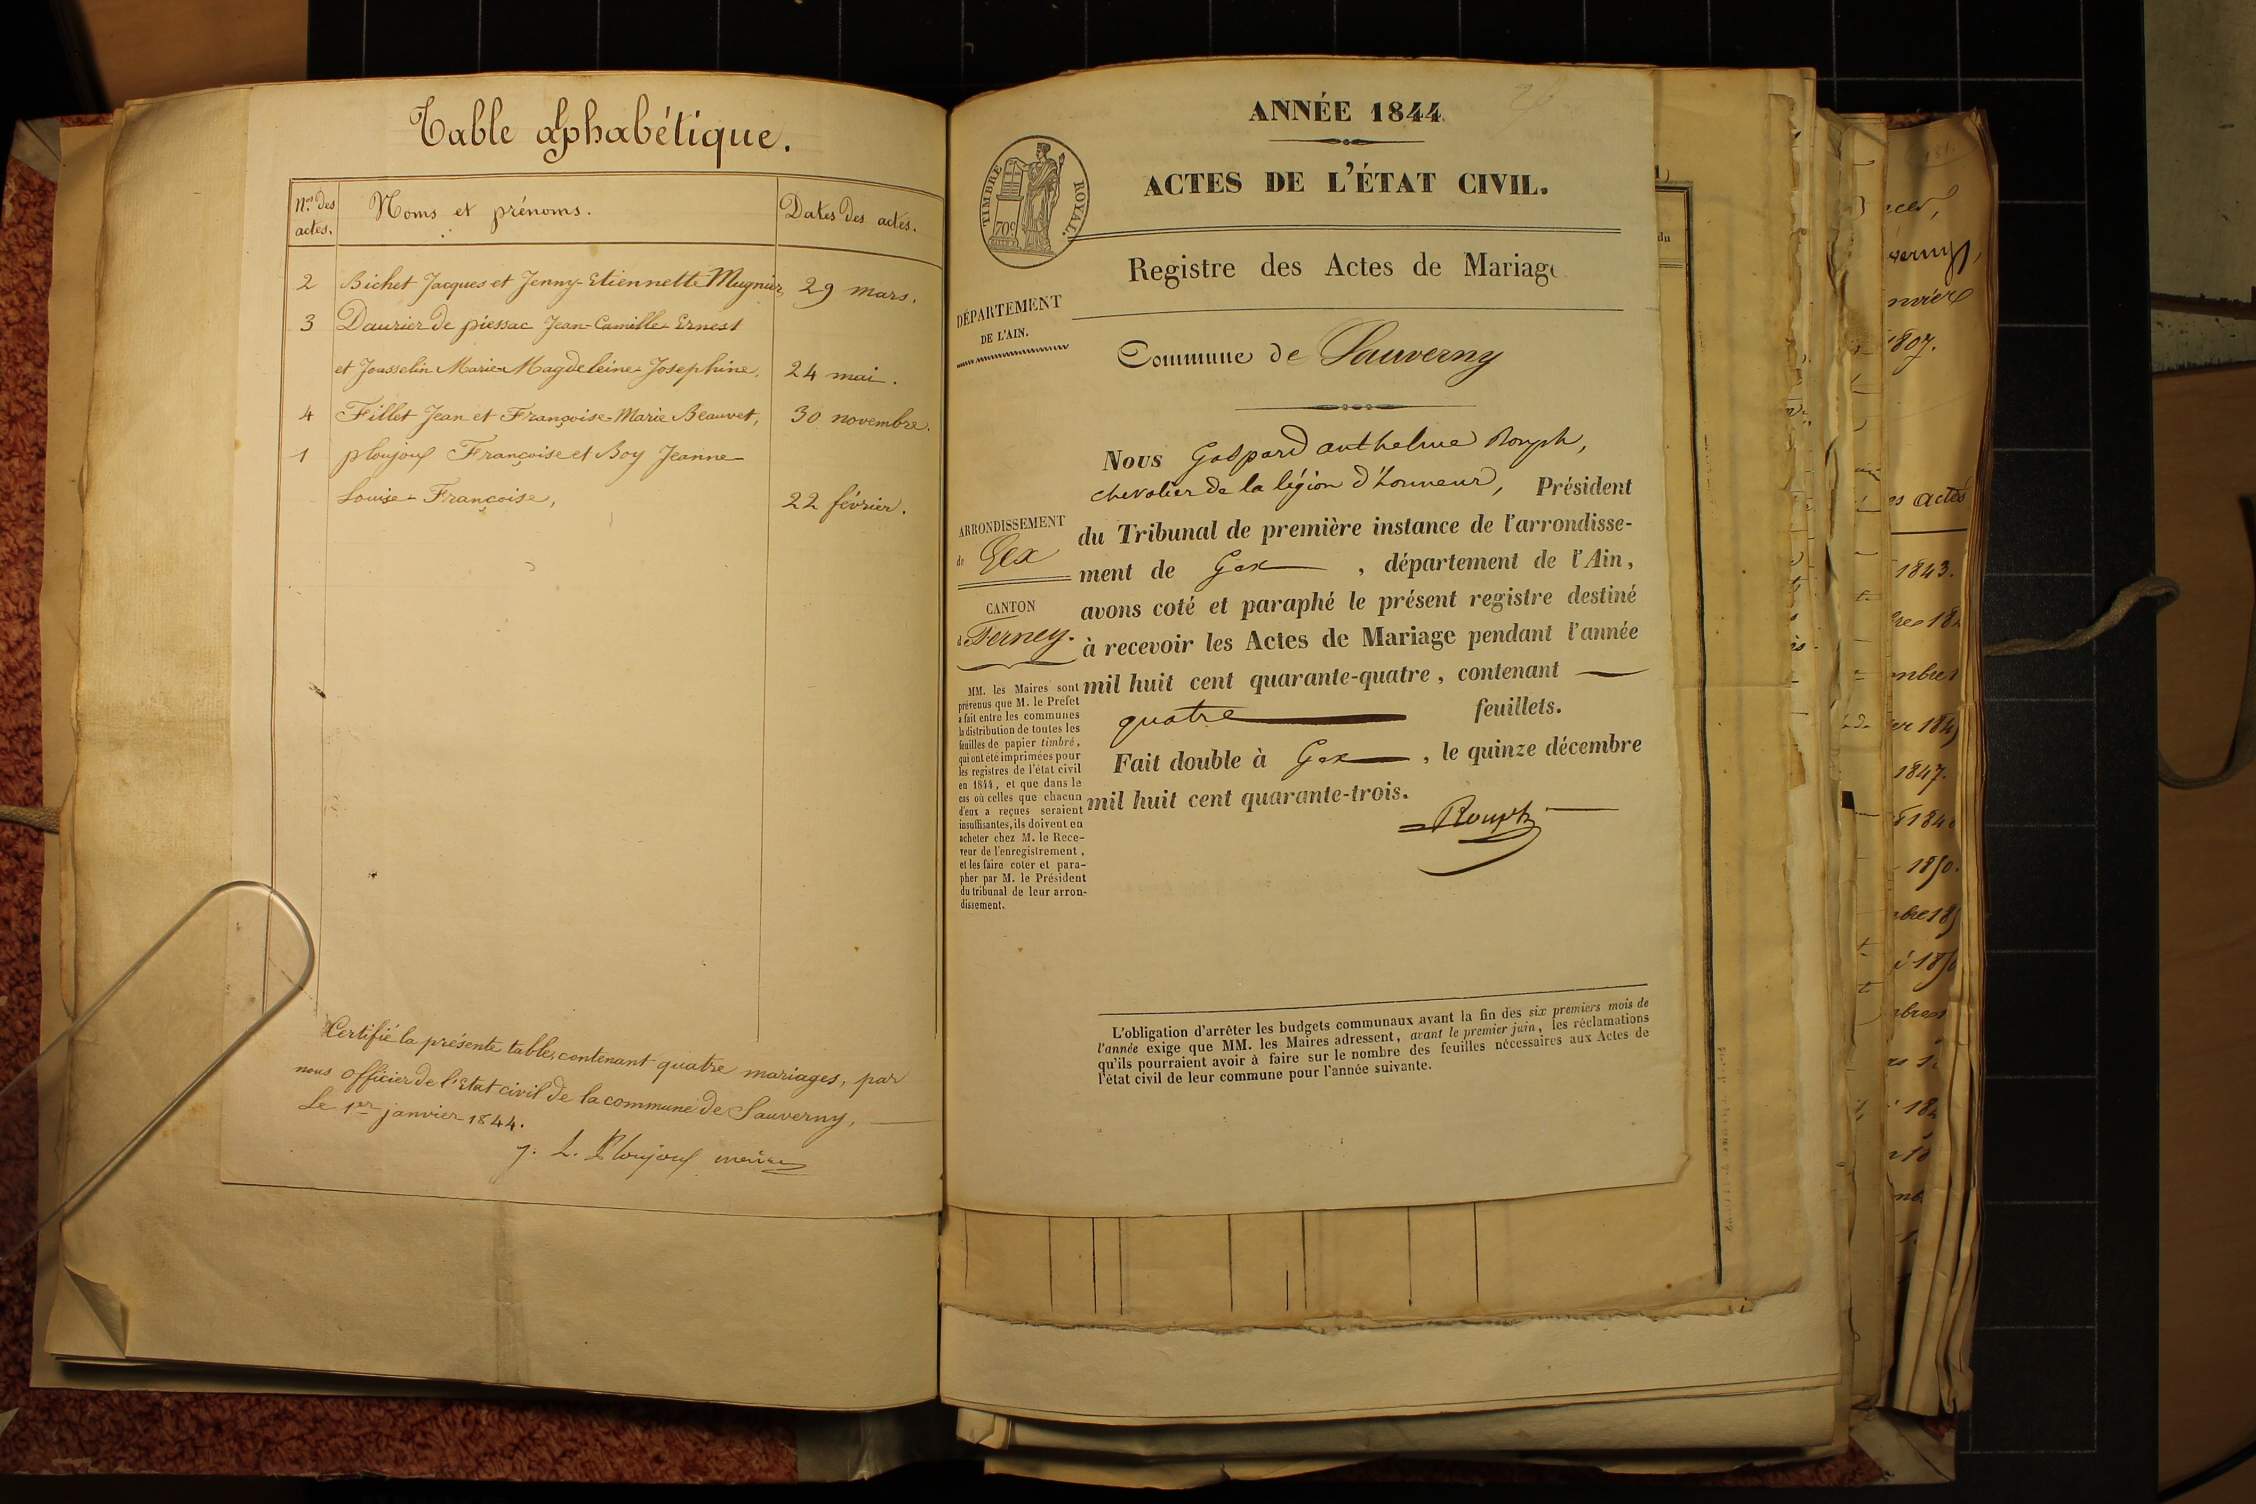 Table alphabétique.
Nos des actes.
Noms et prénoms.
Dates des actes.
2 Bichet Jacques et Jenny-Etiennette Mugnier, 29 mars.
3 Daurier de piessac Jean-Camille-Ernest
et Jousselin Marie-Magdeleine-Josephine, 24 mai.
4 Fillet Jean et Françoise-Marie Beauvet, 30 novembre.
1 ploujoux Françoise et Boy Jeanne-
Louise-Françoise, 22 février.
Certifié la présente table, contenant quatre mariages, par
nous officier de l'Etat civil de la commune de Sauverny,
Le 1er janvier 1844.
J. L. Ploujoux maire
ANNÉE 1844
TIMBRE ROYAL.
70c
ACTES DE L'ÉTAT CIVIL.
Registre des Actes de Mariage
DÉPARTEMENT
DE L'AIN.
Commune de Sauverny
Nous Gaspard anthelme Rouph,
chevalier de la légion d'honneur, Président
du Tribunal de première instance de l'arrondisse-
ment de Gex, département de l'Ain,
avons coté et paraphé le présent registre destiné
à recevoir les Actes de Mariage pendant l'année
mil huit cent quarante-quatre, contenant
quatre feuillets.
Fait double à Gex, le quinze décembre
mil huit cent quarante-trois.
Rouph
ARRONDISSEMENT
de Gex
CANTON
de Ferney.
MM. les Maires sont
prévenus que M. le Préfet
a fait entre les communes
la distribution de toutes les
feuilles de papier timbré,
qui ont été imprimées pour
les registres de l'état civil
en 1844, et que dans le
cas où celles que chacun
d'eux a reçues seraient
insuffisantes, ils doivent en
acheter chez M. le Rece-
veur de l'enregistrement,
et les faire coter et para-
pher par M. le Président
du tribunal de leur arron-
dissement.
L'obligation d'arrêter les budgets communaux avant la fin des six premiers mois de
l'année exige que MM. les Maires adressent, avant le premier juin, les réclamations
qu'ils pourraient avoir à faire sur le nombre des feuilles nécessaires aux Actes de
l'état civil de leur commune pour l'année suivante.
du
1807.
es actes
1843.
1847.
1850.